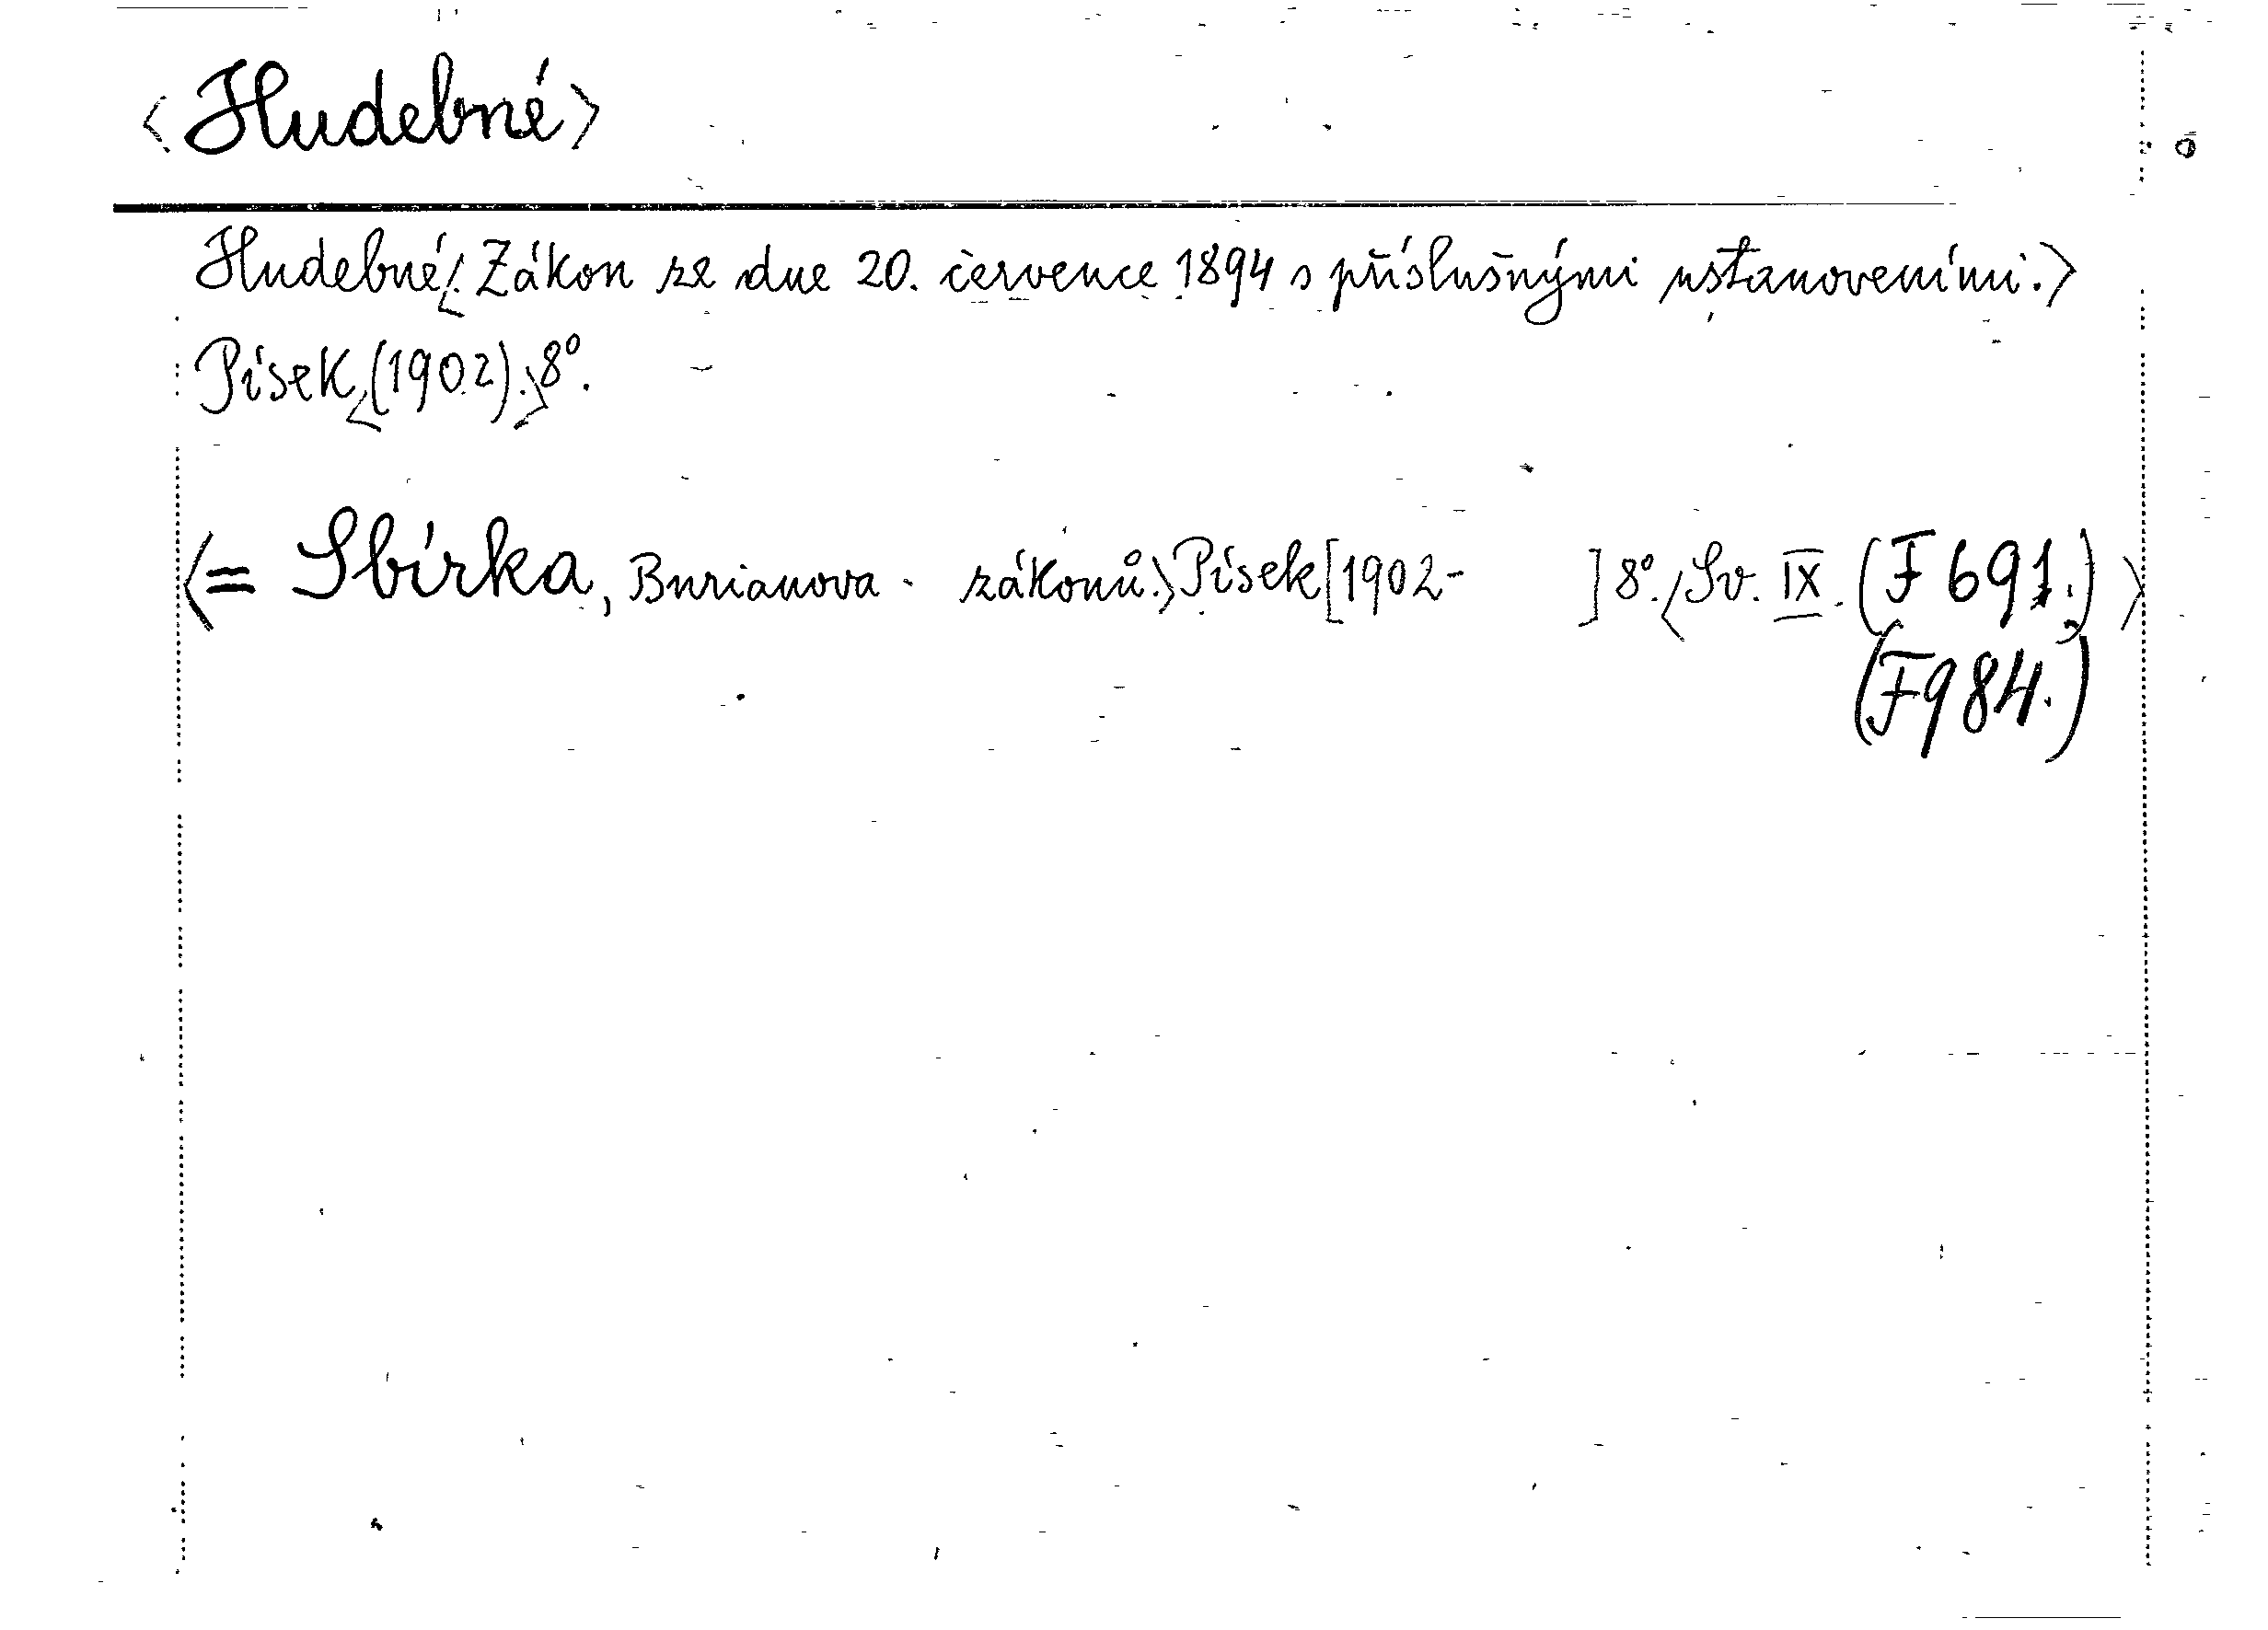 <Hudebné>
Hudebné<. Zákon ze dne 20. července 1894 s příslušnými ustanoveními.>
Písek,<(1902).>8°.
<= Sbírka, Burianova - zákonů.>Písek[1902- ]8°.<Sv. IX. (F 691.)>
(F984.)